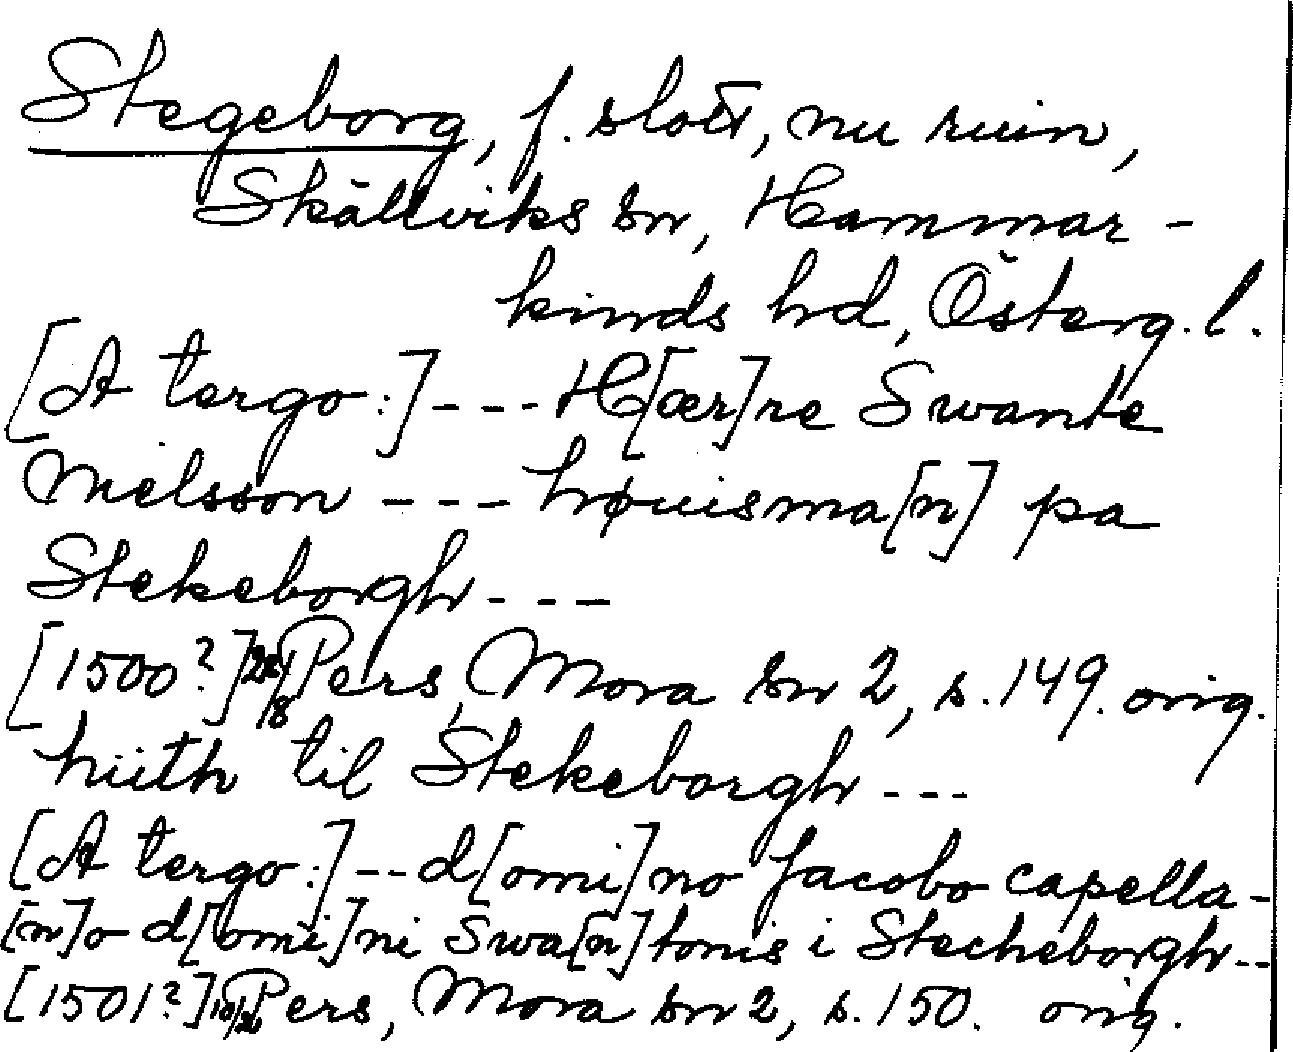 Stegeborg, f. slott, nu ruin,
Skällviks sn, Hammar-
kinds hd, Österg. l.
[A tergo:] --- H[ær]re Swante
Nielsson --- høuisma[n] pa
Stekeborgh ---
[1500?] Pers, Mora sn 2, s. 149. orig.
hiith til Stekeborgh ---
[A tergo:] -- d[omi]no Jacobo capella-
[n]o d[omi]ni Swa[n]tonis i Stecheborgh --
[1501?] Pers, Mora sn 2, s. 150. orig.